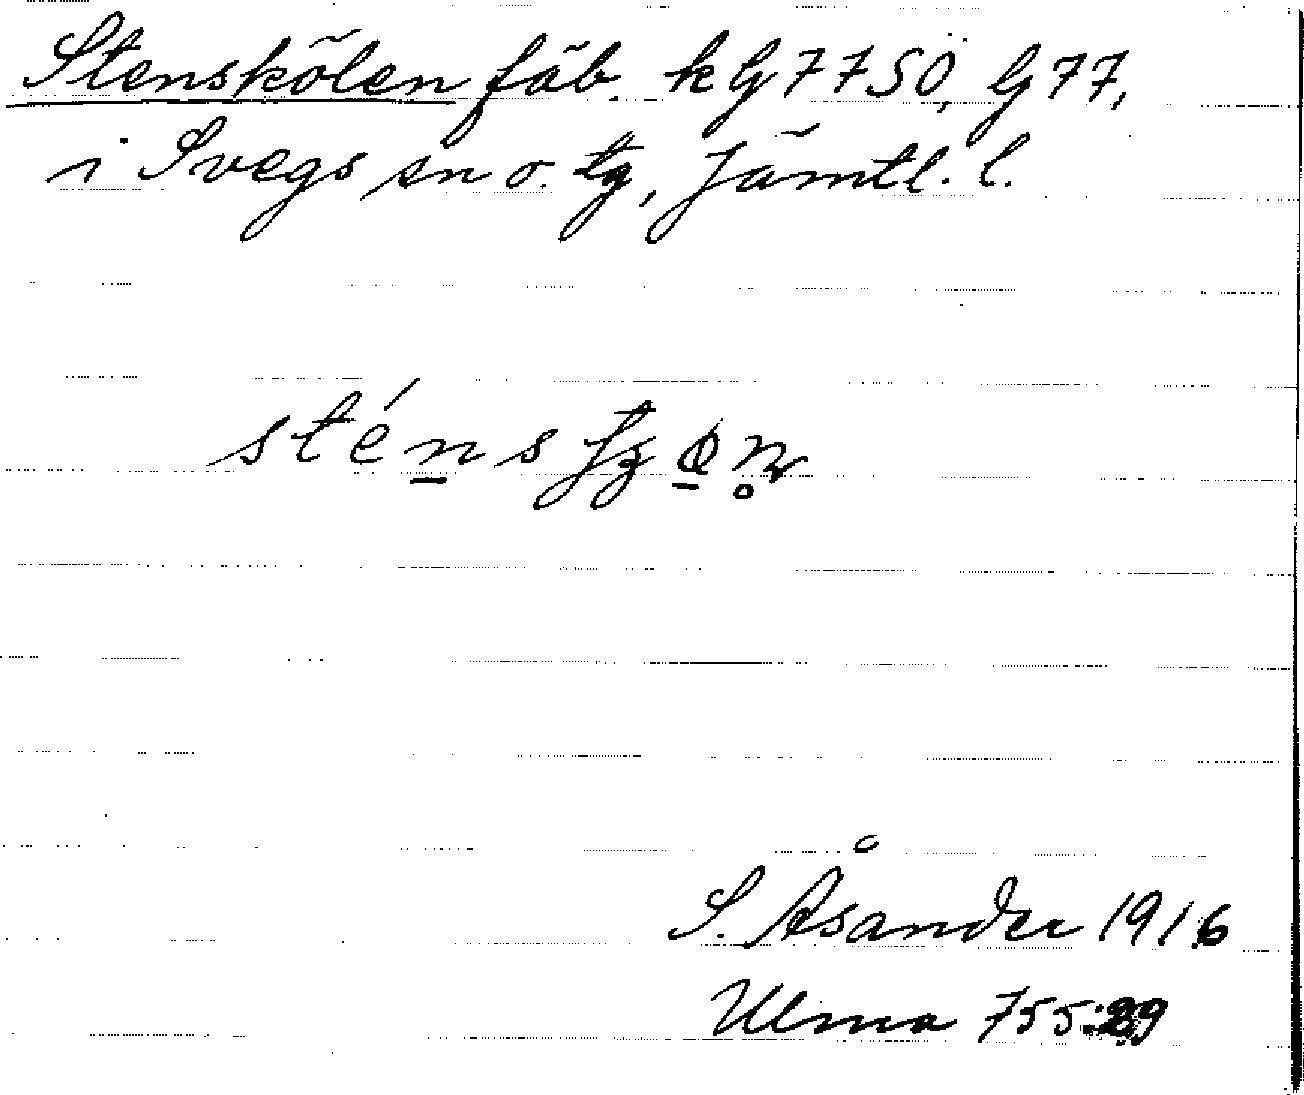 Stenskölen fäb. k G 7750, G 77,
i Svegs sn o. tg, Jämtl. l.
S. Åsander 1916
Ulma 755:29